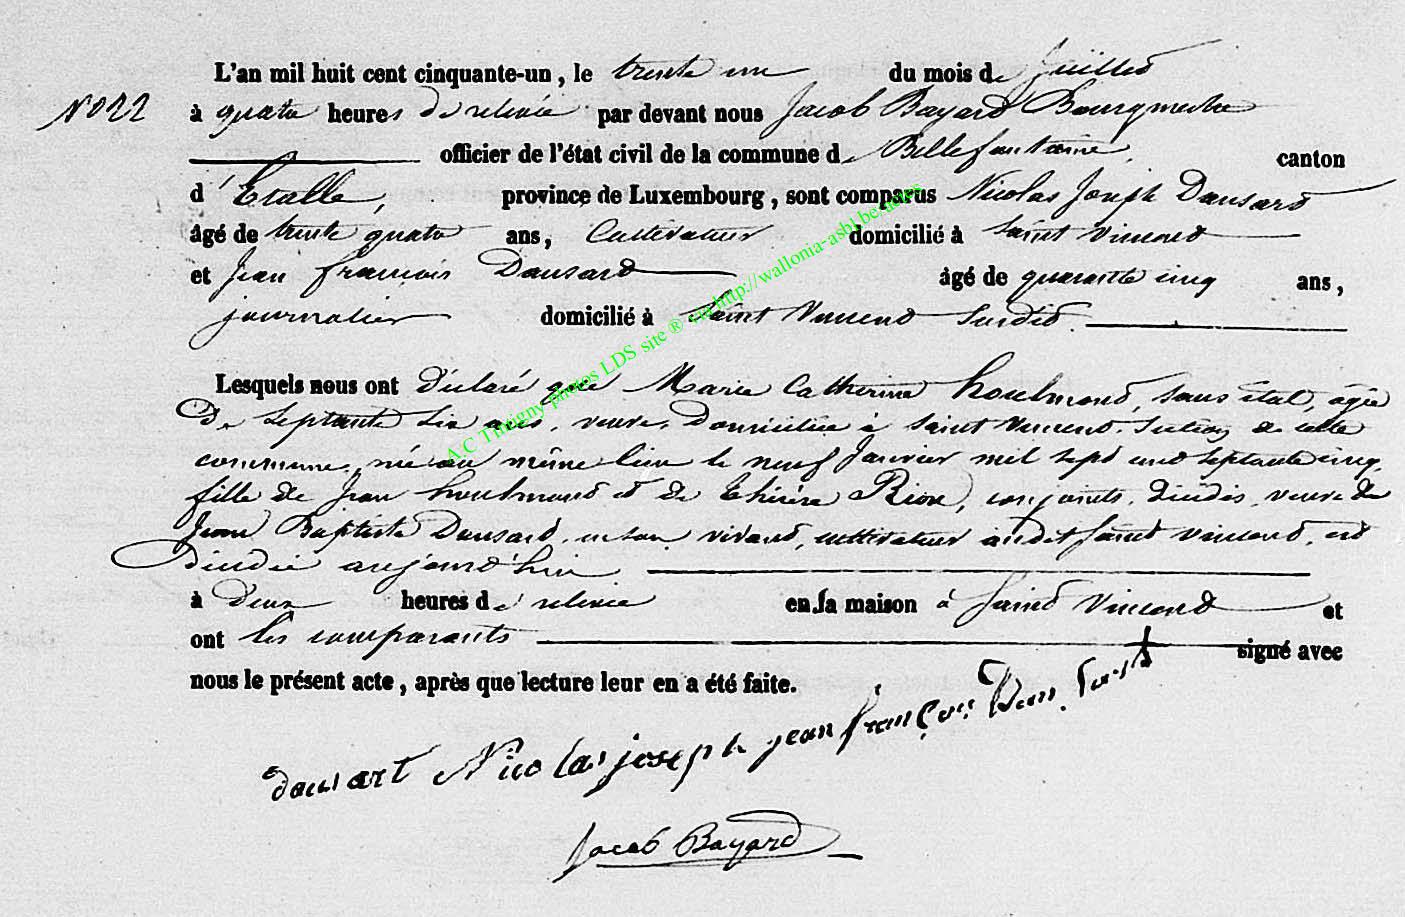 L'an mil huit cent cinquante-un, le trente un du mois de Juillet
N° 22 à quatre heures de relevée par devant nous Jacob Bayard Bourgmestre
officier de l'état civil de la commune de Bellefontaine, canton
d'Etalle, province de Luxembourg, sont comparus Nicolas Joseph Dansard
âgé de trente quatre ans, Cultivateur domicilié à Saint Vincent
et Jean françois Dansard âgé de quarante cinq ans,
journalier domicilié à Saint Vincent Susdit.
Lesquels nous ont déclaré que Marie Catherine houlmond, sans état, agée
de septante six ans, veuve, domiciliée à Saint Vincent, Section de cette
commune, née au même lieu le neuf Janvier mil sept cent septante cinq,
fille de Jean houlmond et de thérèse Rion, conjoints, décédés, veuve de
Jean Baptiste Dansard, en son vivant, cultivateur audit Saint Vincent, est
décédée aujourd'hui
à deux heures de relevée en sa maison à Saint Vincent et
ont les comparants signé avec
nous le présent acte, après que lecture leur en a été faite.
dansart Nicolas joseph jean françois Dansard
Jacob Bayard
A.C Tintigny photos LDS site ® via http://wallonia-asbl.be/actes